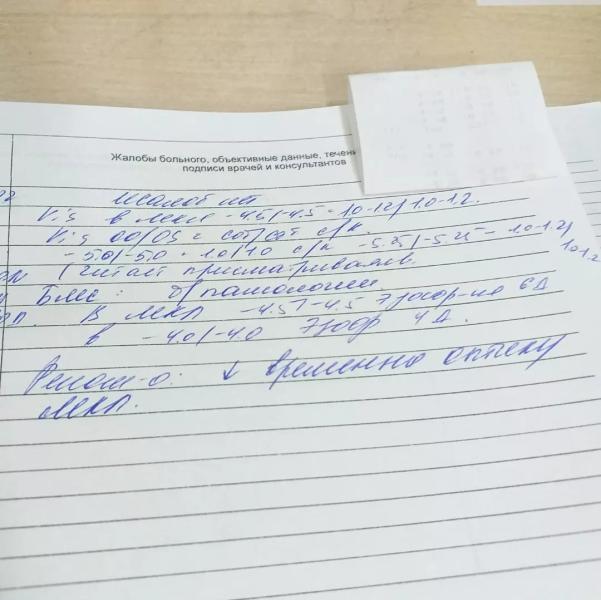 Жалобы больного, объективные данные, течени
подписи врачей и консультантов
жалоб нет
Vis в МКЛ -4.5/-4.5 = 1.0-1.2/1.0-1.2.
Vis OD/OS = с/к
-5.0/-5.0 = 1.0/1.0 с/к -5.25/-5.25 = 1.0-1.2/
1.0-1.2
(читает присматриваясь.
БМС: б/патологии.
В МКЛ -4.5/-4.5 эзофор-ия 6Δ
в -4.0/-4.0 эзоф 4Δ.
Реком-о: ↓ временно оптику
МКЛ.